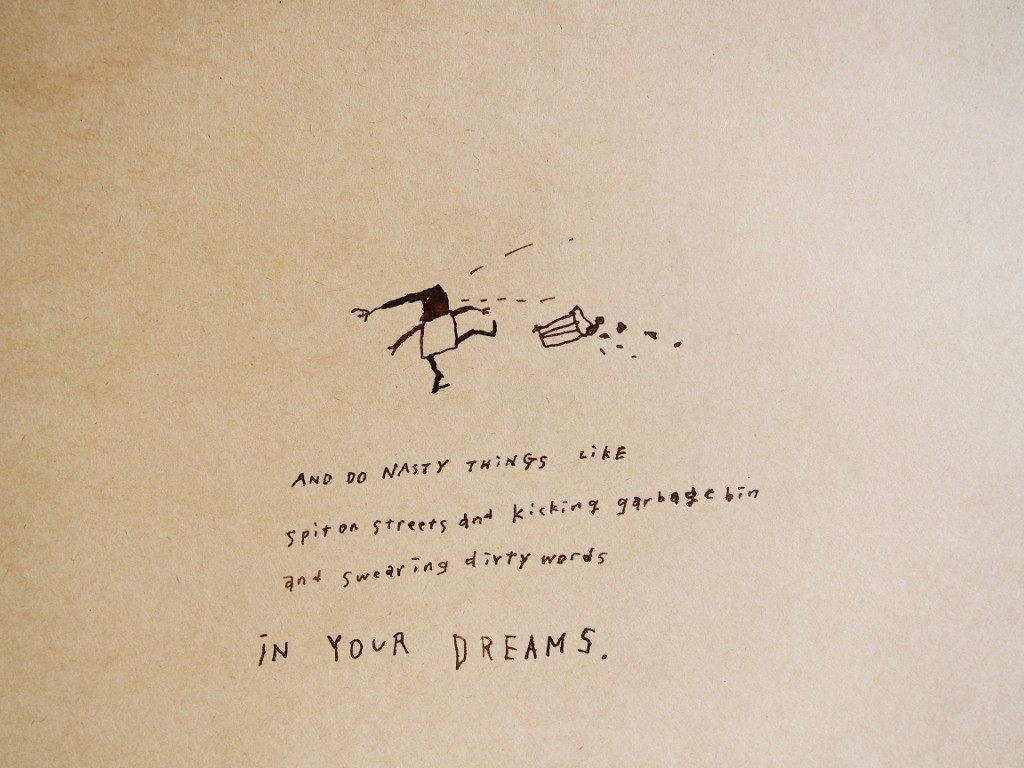 AND DO NASTY THiNGS LiKE
spit on streets and kicking garbage bin
and swearing dirty words
iN YOUR DREAMS.